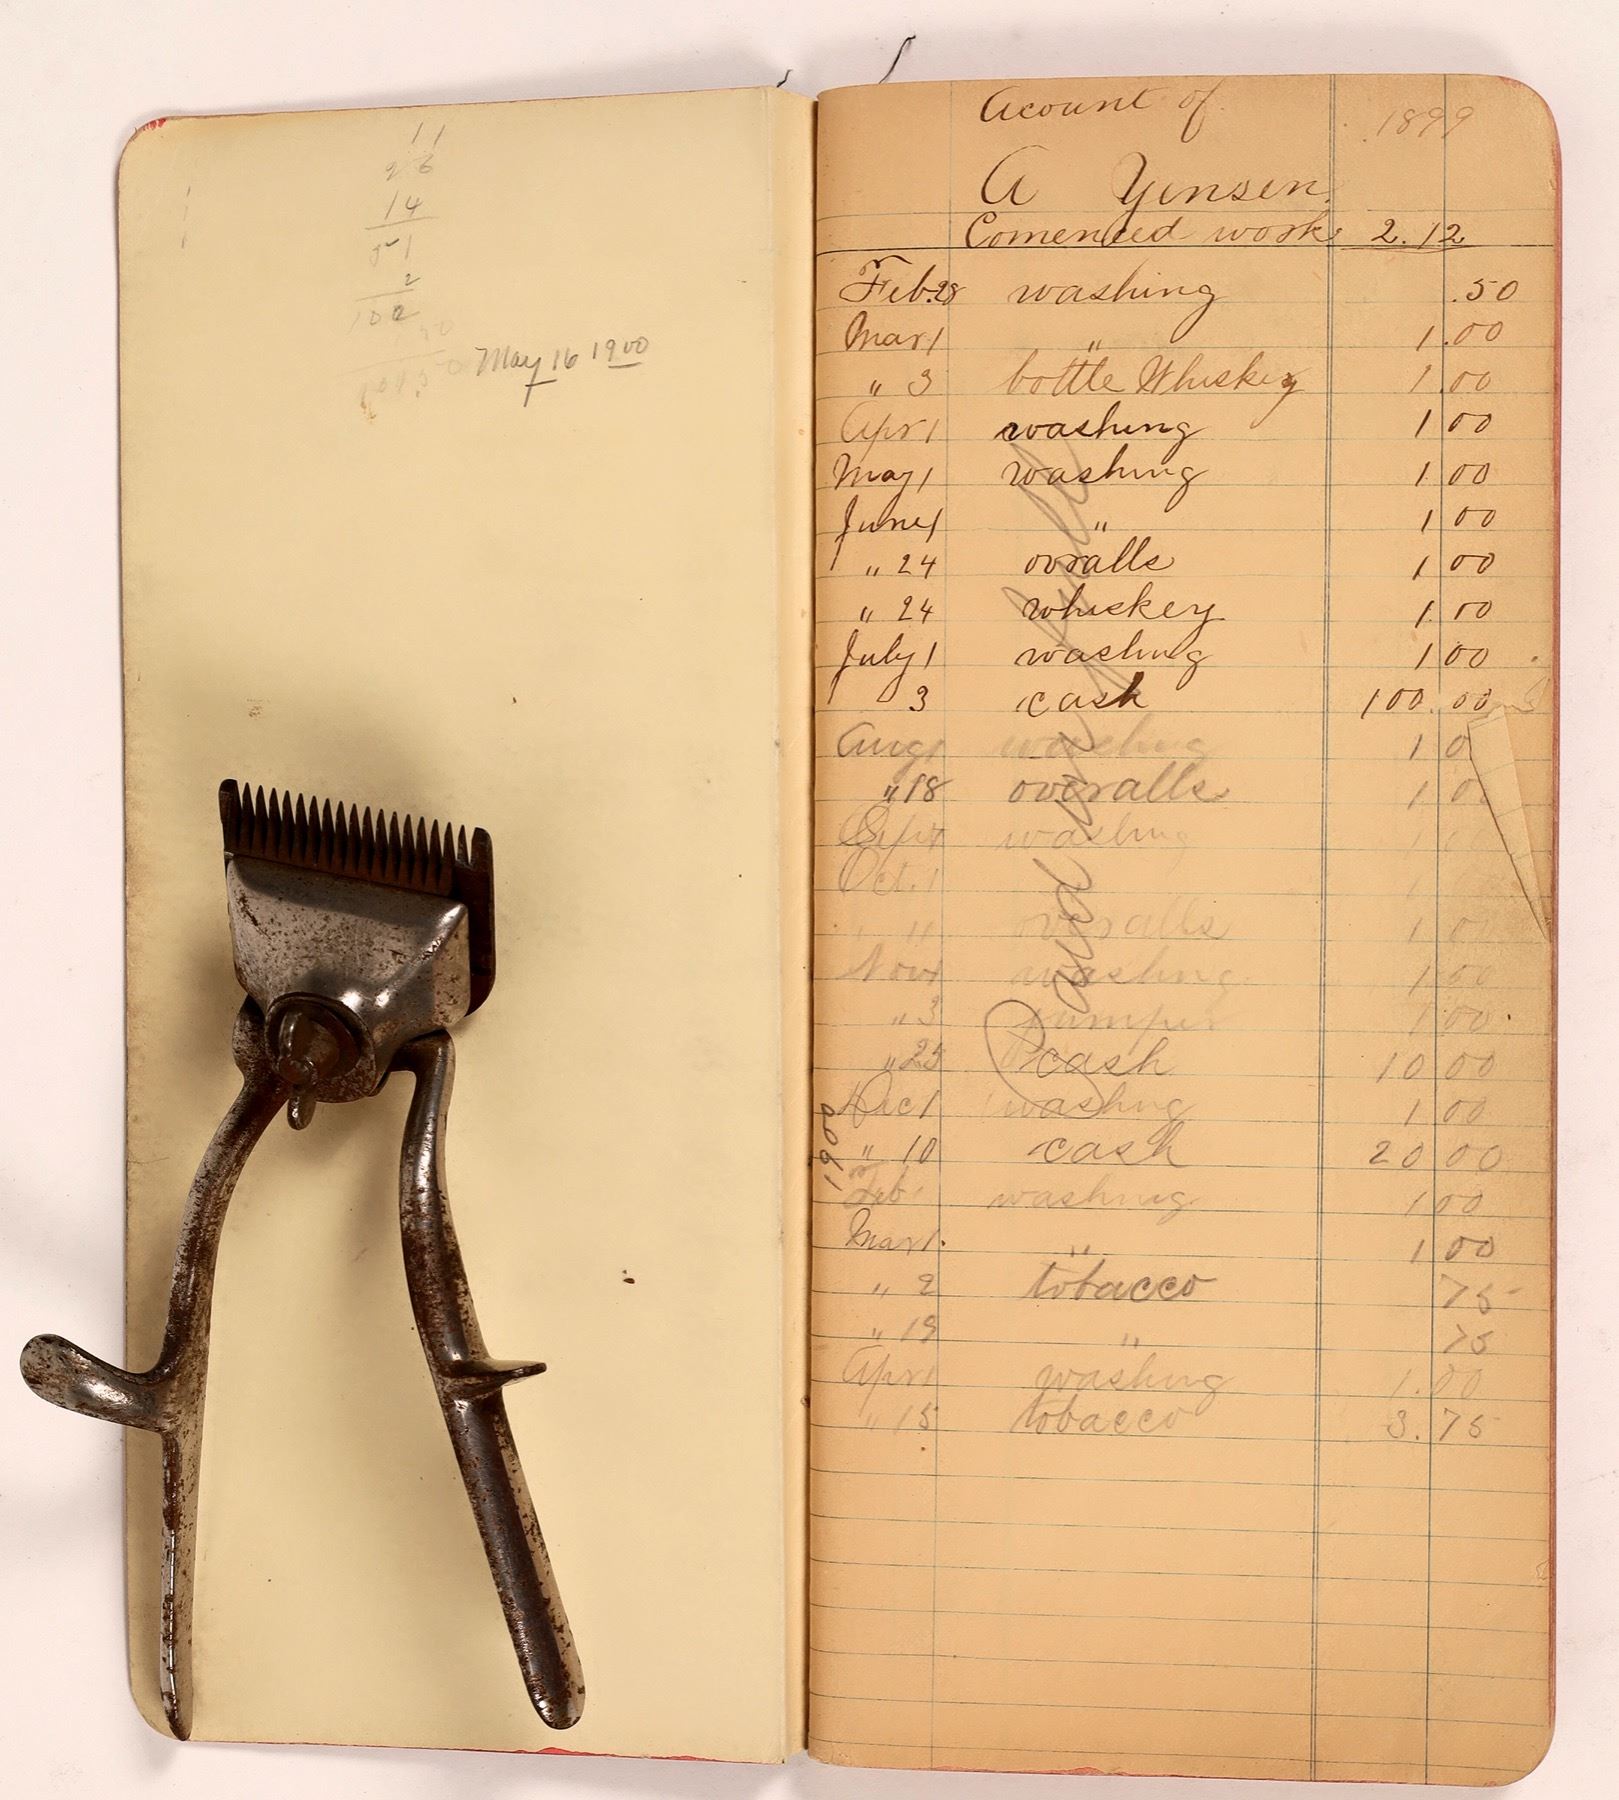 11
26
14
51
2
102
May 16 1900
Acount of
1899
A Yensen
Comenced work 2.12
Feb. 28 washing .50
Mar 1 " 1.00
" 3 bottle Whiskey 1.00
Apr 1 washing 1 00
May 1 washing 1 00
June 1 " 1 00
" 24 ovralls 1 00
" 24 whiskey 1.00
July 1 washing 1 00
3 cash 100.00
Aug 1 washing 1 0
" 18 overalls 1 0
Sept 1 washing 1
Oct. 1 1
" overalls 1 0
Nov 1 washing 1 00
" 3 jumper 1 00
" 25 cash 10 00
Dec 1 washing 1 00
1900
" 10 cash 20 00
Feb 1 washing 1 00
Mar 1. " 1 00
" 2 tobacco 75
" 19 " 75
Apr 1 washing 1.00
" 15 tobacco 3.75
Paid in full